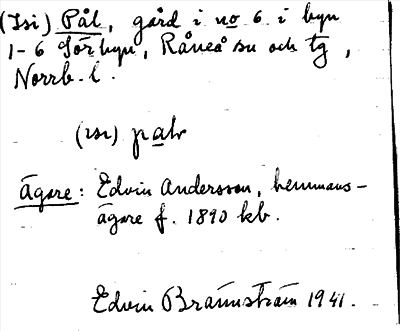 (Isi) Pål, gård i no 6 i byn
1-6 Sörbyn, Råneå sn och tg,
Norrb. l.
(ısı)
Ägare: Edvin Andersson, hemmans-
ägare f. 1890 kb.
Edvin Brännström 1941.